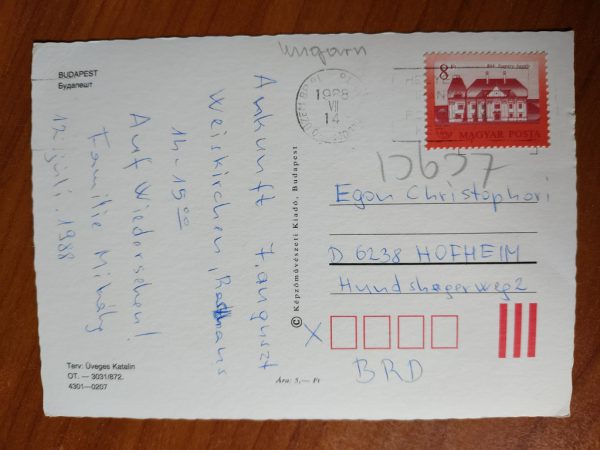 BUDAPEST
Будапешт
Ungarn
8 Ft
MAGYAR POSTA
1988
VII
14
Ankunft 7. auguszt
Weiskirchen, Rathaus
14-15⁰⁰
Auf Wiedersehen!
Familie Mihály
12. juli. 1988
© Képzőművészeti Kiadó, Budapest
Egon Christophori
D 6238 HOFHEIM
Hundshagerweg 2
X
BRD
Terv: Üveges Katalin
OT. — 3031/872.
4301—0207
Ára: 5,— Ft